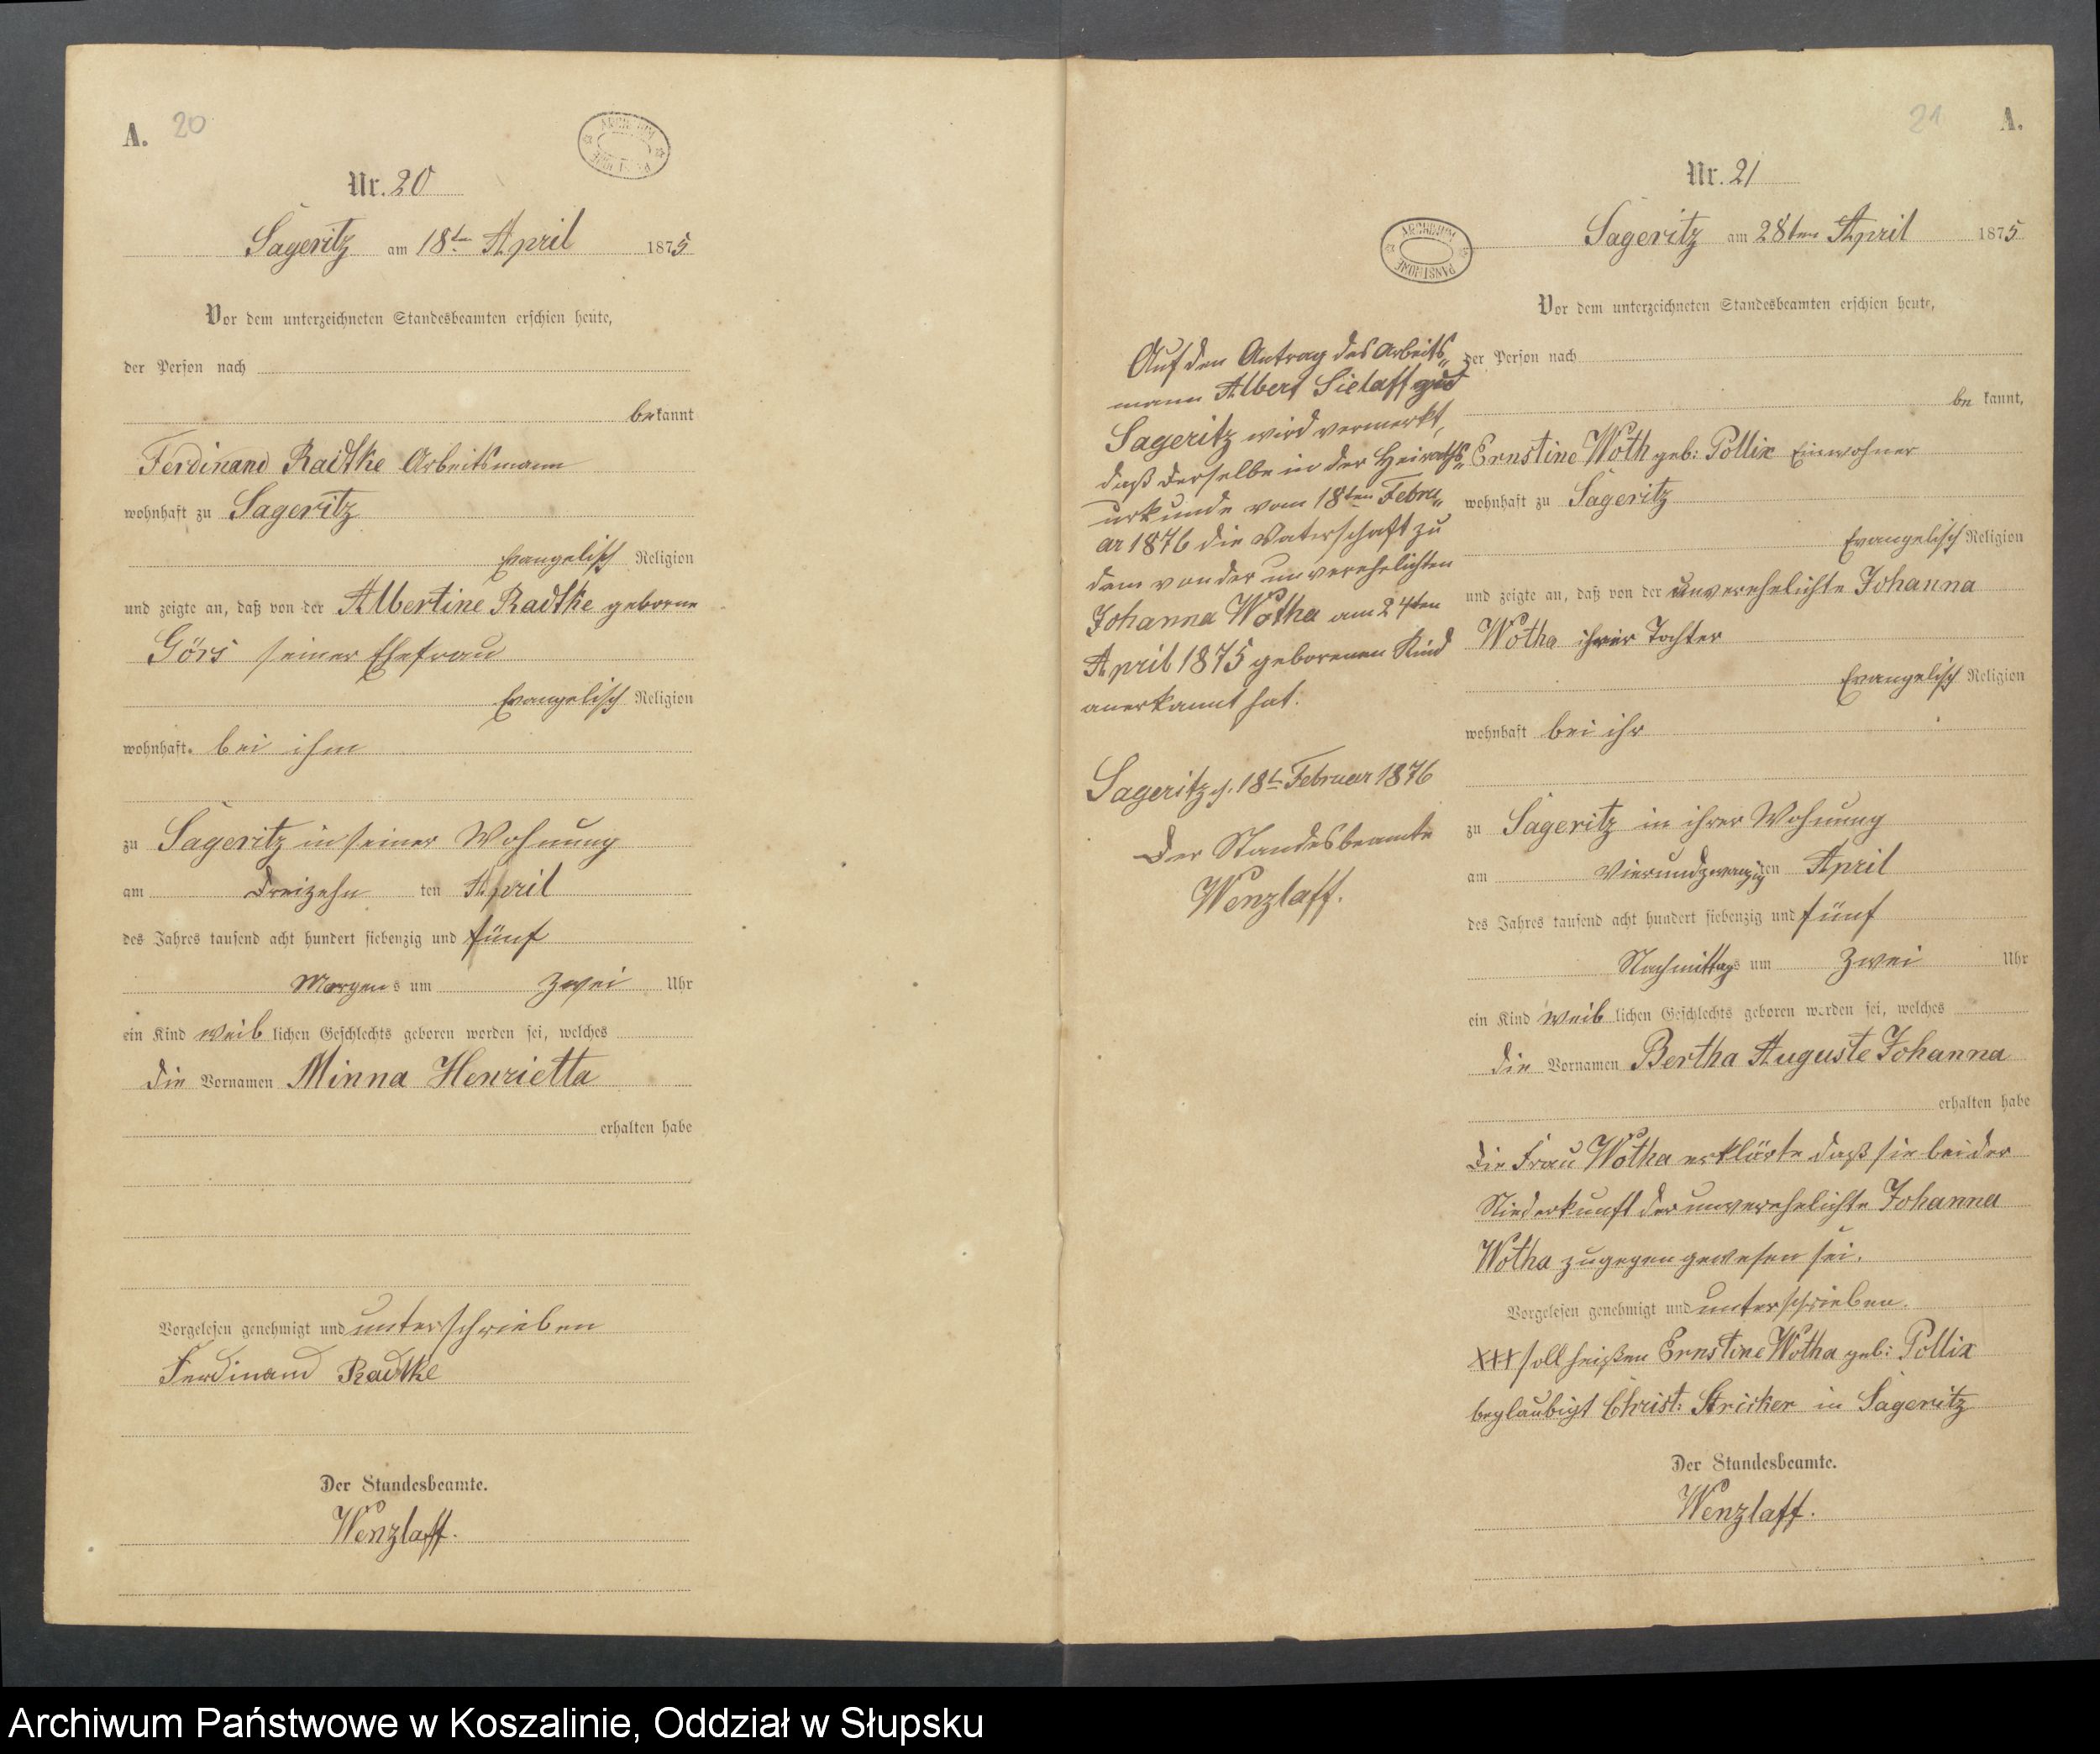 A. 20
ARCHIWUM PAŃSTWOWE
Nr. 20
Sageritz am 18ten April 1875
Vor dem unterzeichneten Standesbeamten erschien heute,
der Person nach
bekannt
Ferdinand Radtke Arbeitsmann
wohnhaft zu Sageritz
Evangelisch Religion
und zeigte an, daß von der Albertine Radtke geborene
Görs seiner Ehefrau
Evangelisch Religion
wohnhaft bei ihm
zu Sageritz in seiner Wohnung
am Dreizehn ten April
des Jahres tausend acht hundert siebenzig und fünf
Morgens um zwei Uhr
ein Kind weiblichen Geschlechts geboren worden sei, welches
die Vornamen Minna Henrietta
erhalten habe
Vorgelesen genehmigt und unterschrieben
Ferdinand Radtke
Der Standesbeamte.
Wenzlaff.
21 A.
Nr. 21
ARCHIWUM PAŃSTWOWE
Sageritz am 28ten April 1875
Vor dem unterzeichneten Standesbeamten erschien heute,
der Person nach
be kannt,
Ernstine Woth geb: Pollix Einwohner
wohnhaft zu Sageritz
Evangelisch Religion
und zeigte an, daß von der unverehelichte Johanna
Wotha ihrer Tochter
Evangelisch Religion
wohnhaft bei ihr
zu Sageritz in ihrer Wohnung
am Vierundzwanzigten April
des Jahres tausend acht hundert siebenzig und fünf
Nachmittags um zwei Uhr
ein Kind weiblichen Geschlechts geboren worden sei, welches
die Vornamen Bertha Auguste Johanna
erhalten habe
Die Frau Wotha erklärte daß sie bei der
Niederkunft der unverehelichte Johanna
Wotha zugegen gewesen sei.
Vorgelesen genehmigt und unterschrieben.
XXX soll heißen Ernstine Wotha geb: Pollix
beglaubigt Christ: Stricker in Sageritz
Der Standesbeamte.
Wenzlaff.
Auf den Antrag des Arbeits„
mann Albert Sielaff
Sageritz wird vermerkt,
daß derselbe in der Heiraths„
urkunde vom 18ten Febru„
ar 1876 die Vaterschaft zu
dem von der unverehelichten
Johanna Wotha am 24ten
April 1875 geborenen Kind
anerkannt hat.
Sageritz d. 18t Februar 1876
Der Standesbeamte
Wenzlaff.
Archiwum Państwowe w Koszalinie, Oddział w Słupsku